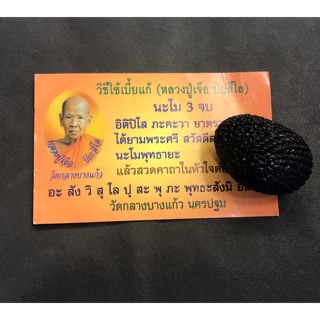 วิธีใช้เบี้ยแก้ (หลวงปู่เจือ ปิยสีโล)
นะโม 3 จบ
อิติปิโส ภะคะวา
ได้ยามพระศรี สวัสดี
นะโมพุทธายะ
แล้วสวดคาถาในหัวใจ
อะ สัง วิ สุ โล ปุ สะ พุ ภะ พุทธะสังมิ
วัดกลางบางแก้ว นครปฐม
หลวงปู่เจือ ปิยสีโล
วัดกลางบางแก้ว